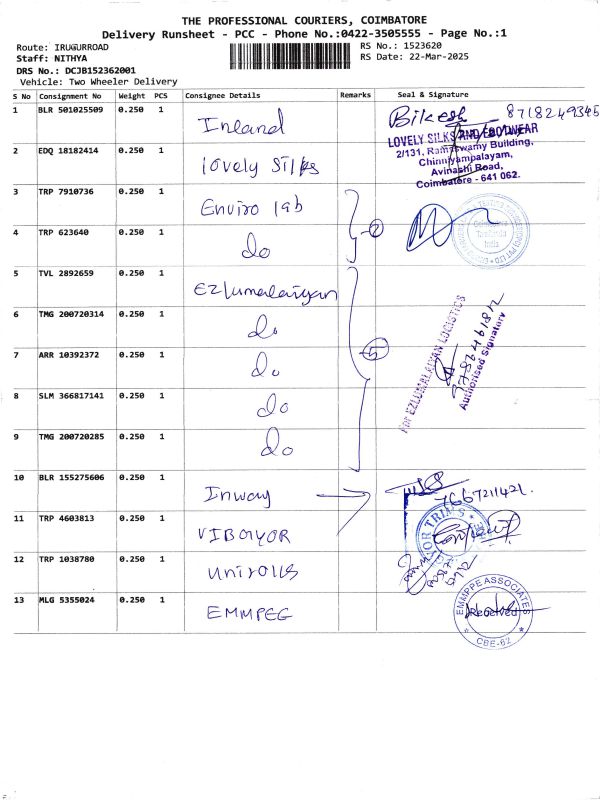 THE PROFESSIONAL COURIERS, COIMBATORE
Delivery Runsheet - PCC - Phone No.:0422-3505555 - Page No.:1
Route: IRUGURROAD
RS No.: 1523620
Staff: NITHYA
RS Date: 22-Mar-2025
DRS No.: DCJB152362001
Vehicle: Two Wheeler Delivery
S No Consignment No Weight PCS Consignee Details Remarks Seal & Signature
1 BLR 501025509 0.250 1 Inland Bikesh 8718249345
LOVELY SILKS AND FOOTWEAR
2/131, Ramaswamy Building,
Chinniyampalayam,
Avinashi Road,
Coimbatore - 641 062.
2 EDQ 18182414 0.250 1 lovely Silks
3 TRP 7910736 0.250 1 Enviro lab
4 TRP 623640 0.250 1 do
2
Coimbatore
Tamilnadu
India
5 TVL 2892659 0.250 1 Ezlumalaiyan
6 TMG 200720314 0.250 1 do
7 ARR 10392372 0.250 1 do
5
For EZLUMALAIYAN LOGISTICS
Authorised Signatory
8 SLM 366817141 0.250 1 do
9 TMG 200720285 0.250 1 do
10 BLR 155275606 0.250 1 Inway
7667211421.
11 TRP 4603813 0.250 1 VIBAYOR
12 TRP 1038780 0.250 1 Unirolls
13 MLG 5355024 0.250 1 EMMPEG
EMMPPE ASSOCIATES
Received
CBE-62